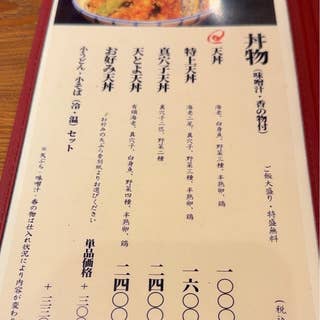 丼物（味噌汁・香の物付）
ご飯大盛り・特盛無料
（税込
天丼
海老、白身魚、野菜三種、半熟卵、鶏
一〇〇〇
特上天丼
海老二尾、真穴子、野菜三種、半熟卵、鶏
一六〇〇
真穴子天丼
真穴子二匹、野菜二種
二四〇〇
天とよ天丼
有頭海老、真穴子、白身魚、野菜四種、半熟卵、鶏
二四〇〇
お好み天丼
お好みの天ぷら各別紙よりお選びください
単品価格＋三〇〇
小うどん・小そば（冷・温）セット
＋三三〇
※天ぷら、味噌汁、香の物は仕入れ状況により内容が変わ